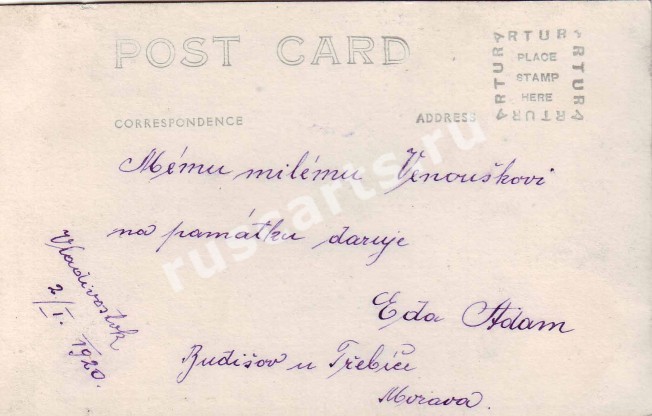 POST CARD
ARTURA
ARTURA
ARTURA
ARTURA
PLACE
STAMP
HERE
CORRESPONDENCE
ADDRESS
Mému milému Venouškovi
na památku daruje
Eda Adam
Budišov u Třebíče
Morava.
Vladivostok
2/I. 1920.
russarts.ru